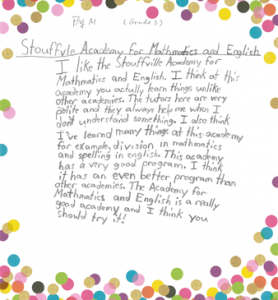 By: M (Grade 5)
Stouffvile Academy For Mathmatics and English
I like the Stouffville Academy for
Mathmatics and English. I think at this
academy you actully learn things unlike
other academies. The tutors here are very
polite and they always help me when I
don't understand something. I also think
I've learned many things at this academy
for example, division in mathmatics
and spelling in english. This academy
has a very good program. I think
it has an even better program than
other academies. The Academy for
Mathmatics and English is a really
good academy and I think you
should try it!